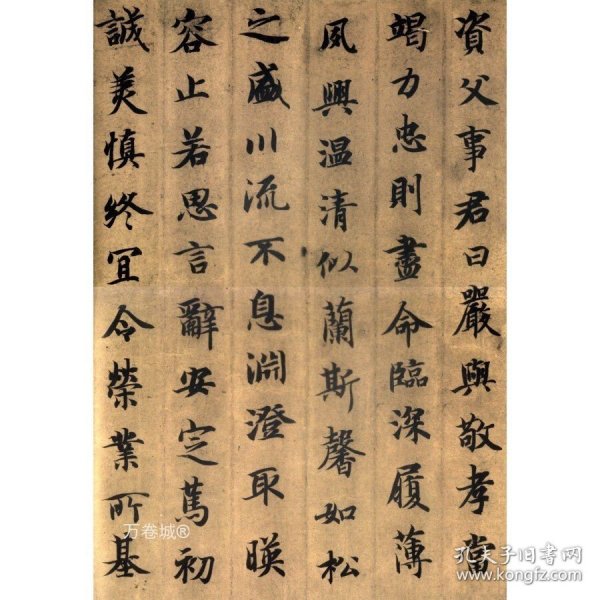 資父事君曰嚴與敬孝當
竭力忠則盡命臨深履薄
夙興温清似蘭斯馨如松
之盛川流不息淵澄取暎
容止若思言辭安定篤初
誠美慎終宜令榮業所基
万卷城®
孔夫子旧书网
www.kongfz.com